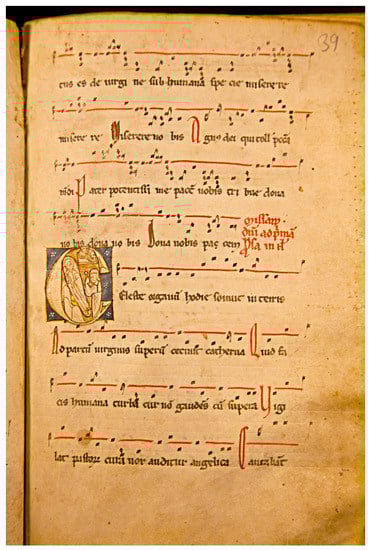 39
tus es de virgi ne sub humana spe cie miserere
miserere Miserere no bis Agnus dei qui toll pcca
mdi Pater potentissi me pace nobis tri bue dona
no bis dona no bis Dona nobis pac cem
Prosa in
Eleste organum hodie sonuit in terris
Ad partum virginis superum cecinit caterva Quid fa
cis humana turba cur non gaudes cum supera Vigi
lat pastorum cura vox auditur angelica Cantabant